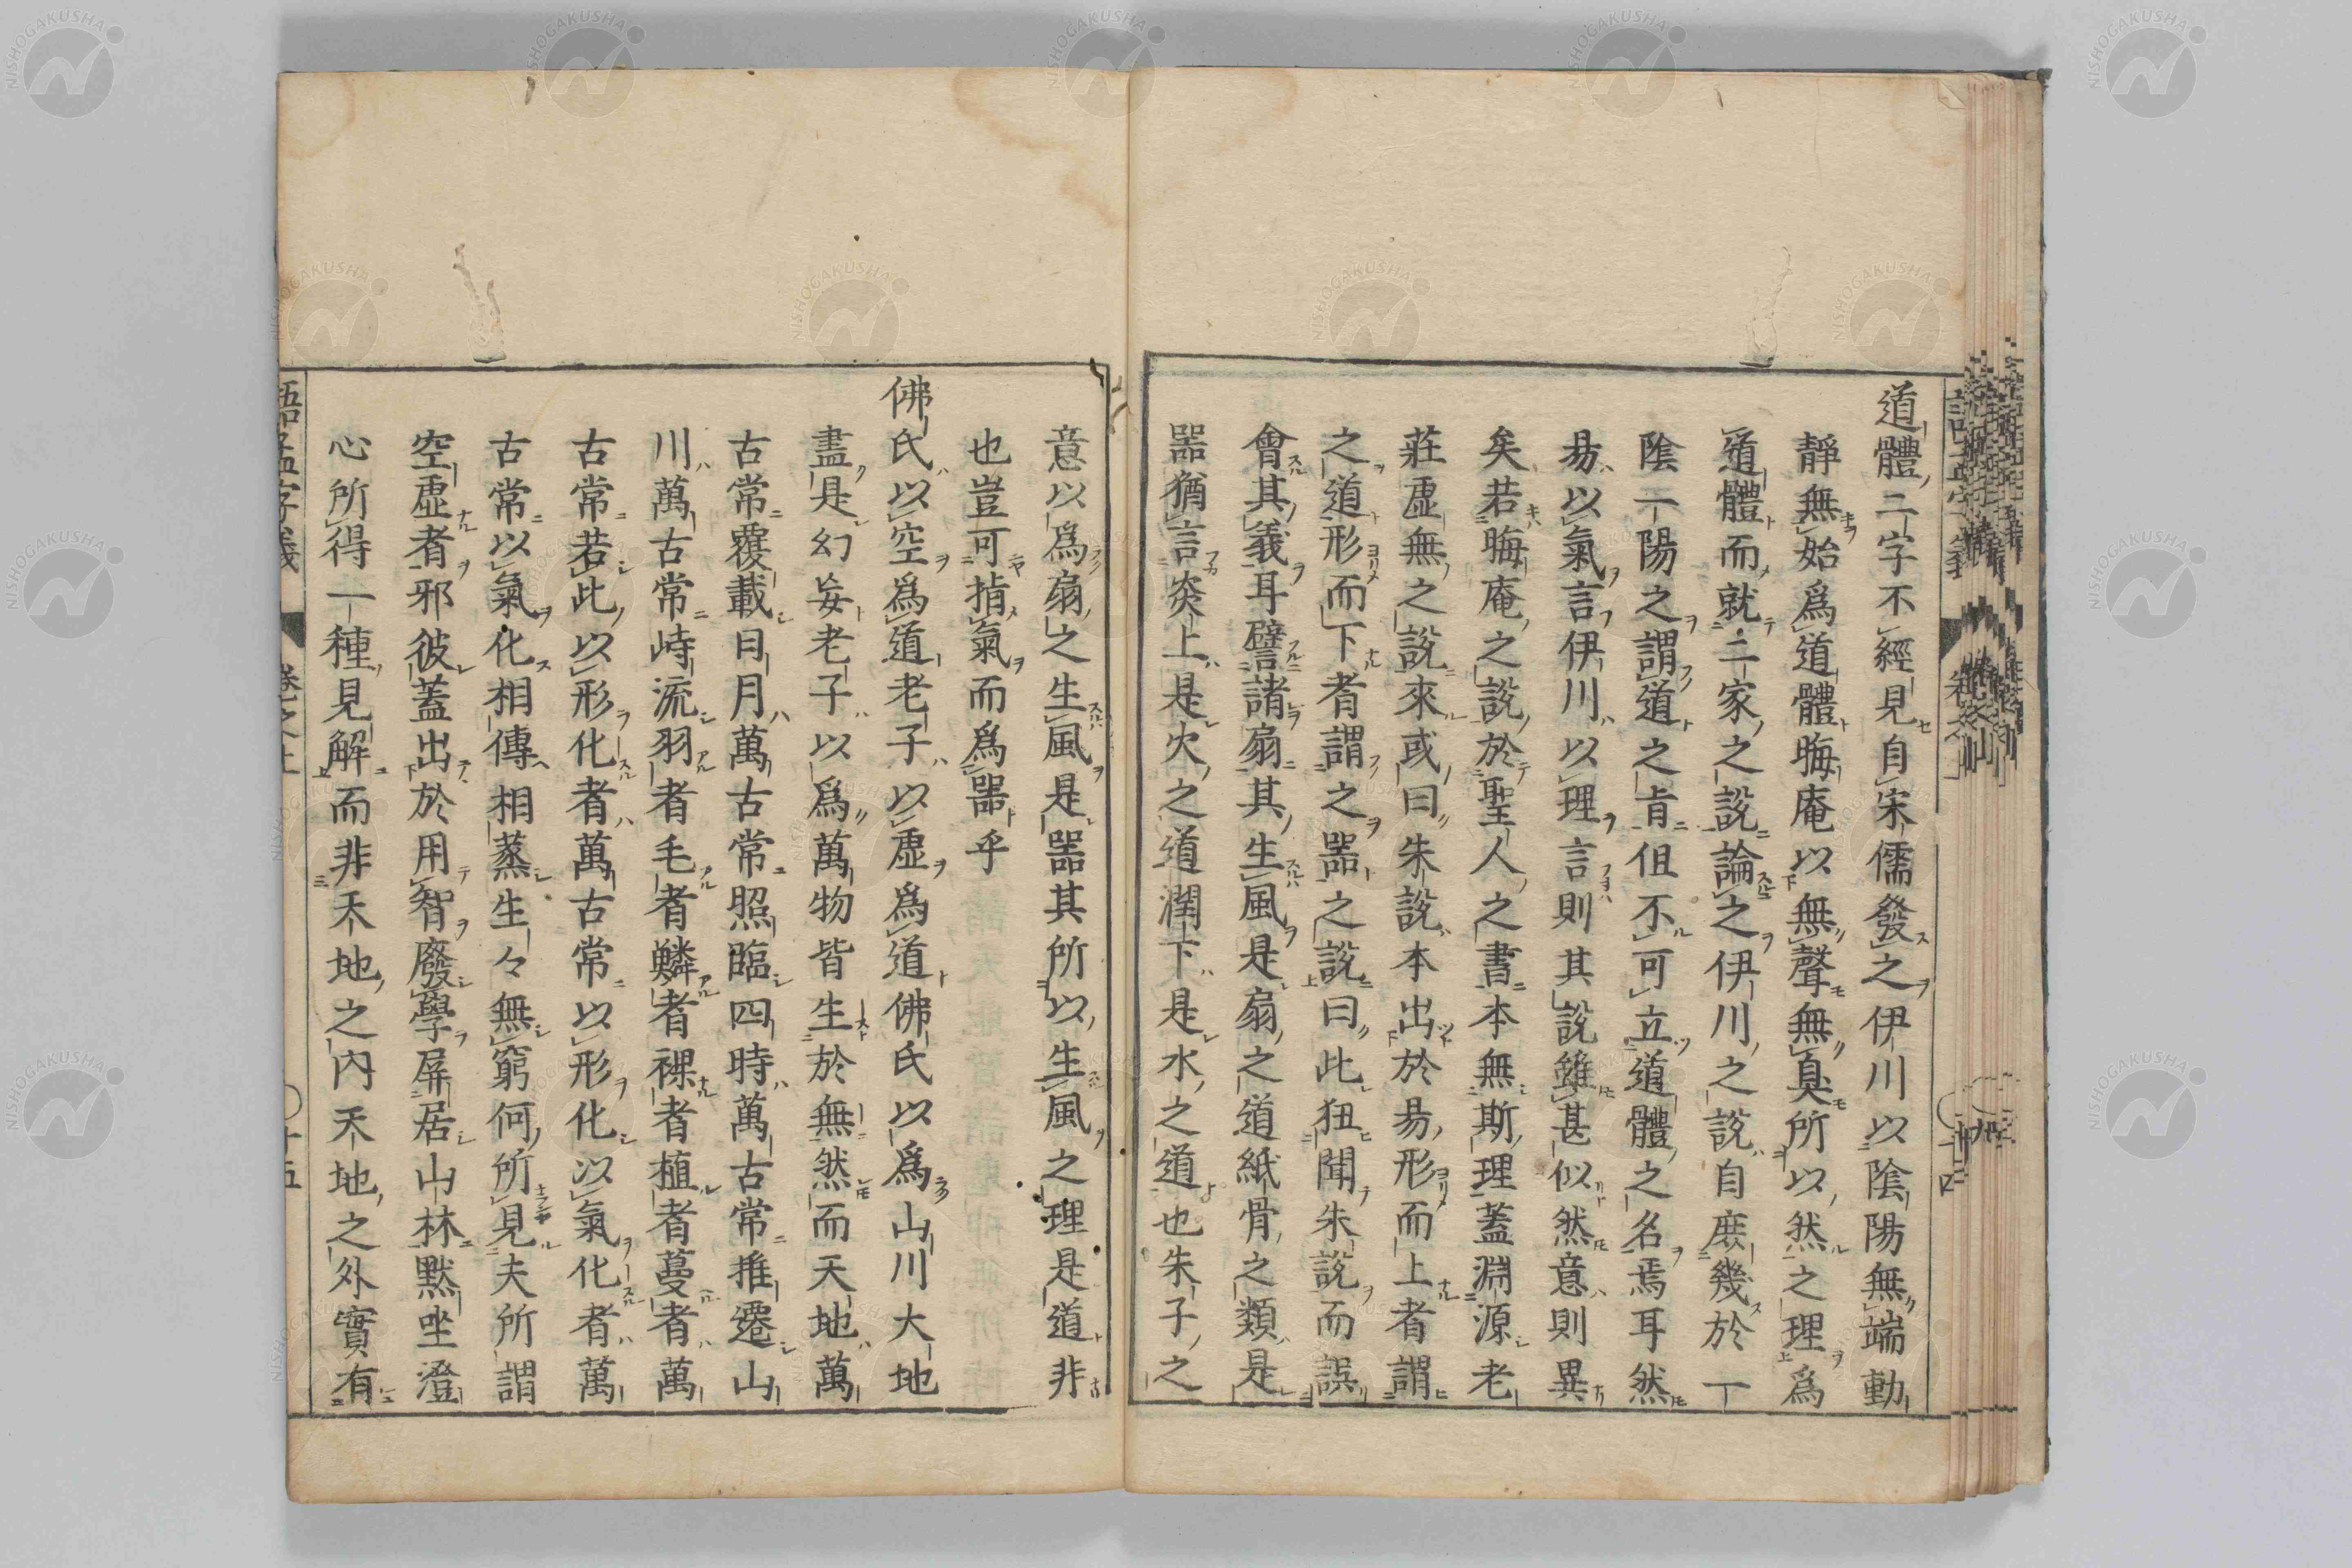 道體二字不經見自宋儒發之伊川以陰陽無端動
靜無始爲道體晦庵以無聲無臭所以然之理爲
道體而就二家之說論之伊川之說自庶幾於一
陰一陽之謂道之旨但不可立道體之名焉耳然
易以氣言伊川以理言則其說雖甚似然意則異
矣若晦庵之說於聖人之書本無斯理蓋淵源老
莊虛無之說來或曰朱說本出於易形而上者謂
之道形而下者謂之器之說曰此狃聞朱說而誤
會其義耳譬諸扇其生風是扇之道紙骨之類是
器猶言炎上是火之道潤下是水之道也朱子之
意以爲扇之生風是器其所以生風之理是道非
也豈可指氣而爲器乎
佛氏以空爲道老子以虛爲道佛氏以爲山川大地
盡是幻妄老子以爲萬物皆生於無然而天地萬
古常覆載日月萬古常照臨四時萬古常推遷山
川萬古常峙流羽者毛者鱗者裸者植者蔓者萬
古常若此以形化者萬古常以形化以氣化者萬
古常以氣化相傳相蒸生々無窮何所見夫所謂
空虛者邪彼蓋出於用智廢學屏居山林默坐澄
心所得一種見解而非天地之內天地之外實有
語孟字義 卷之上 十五